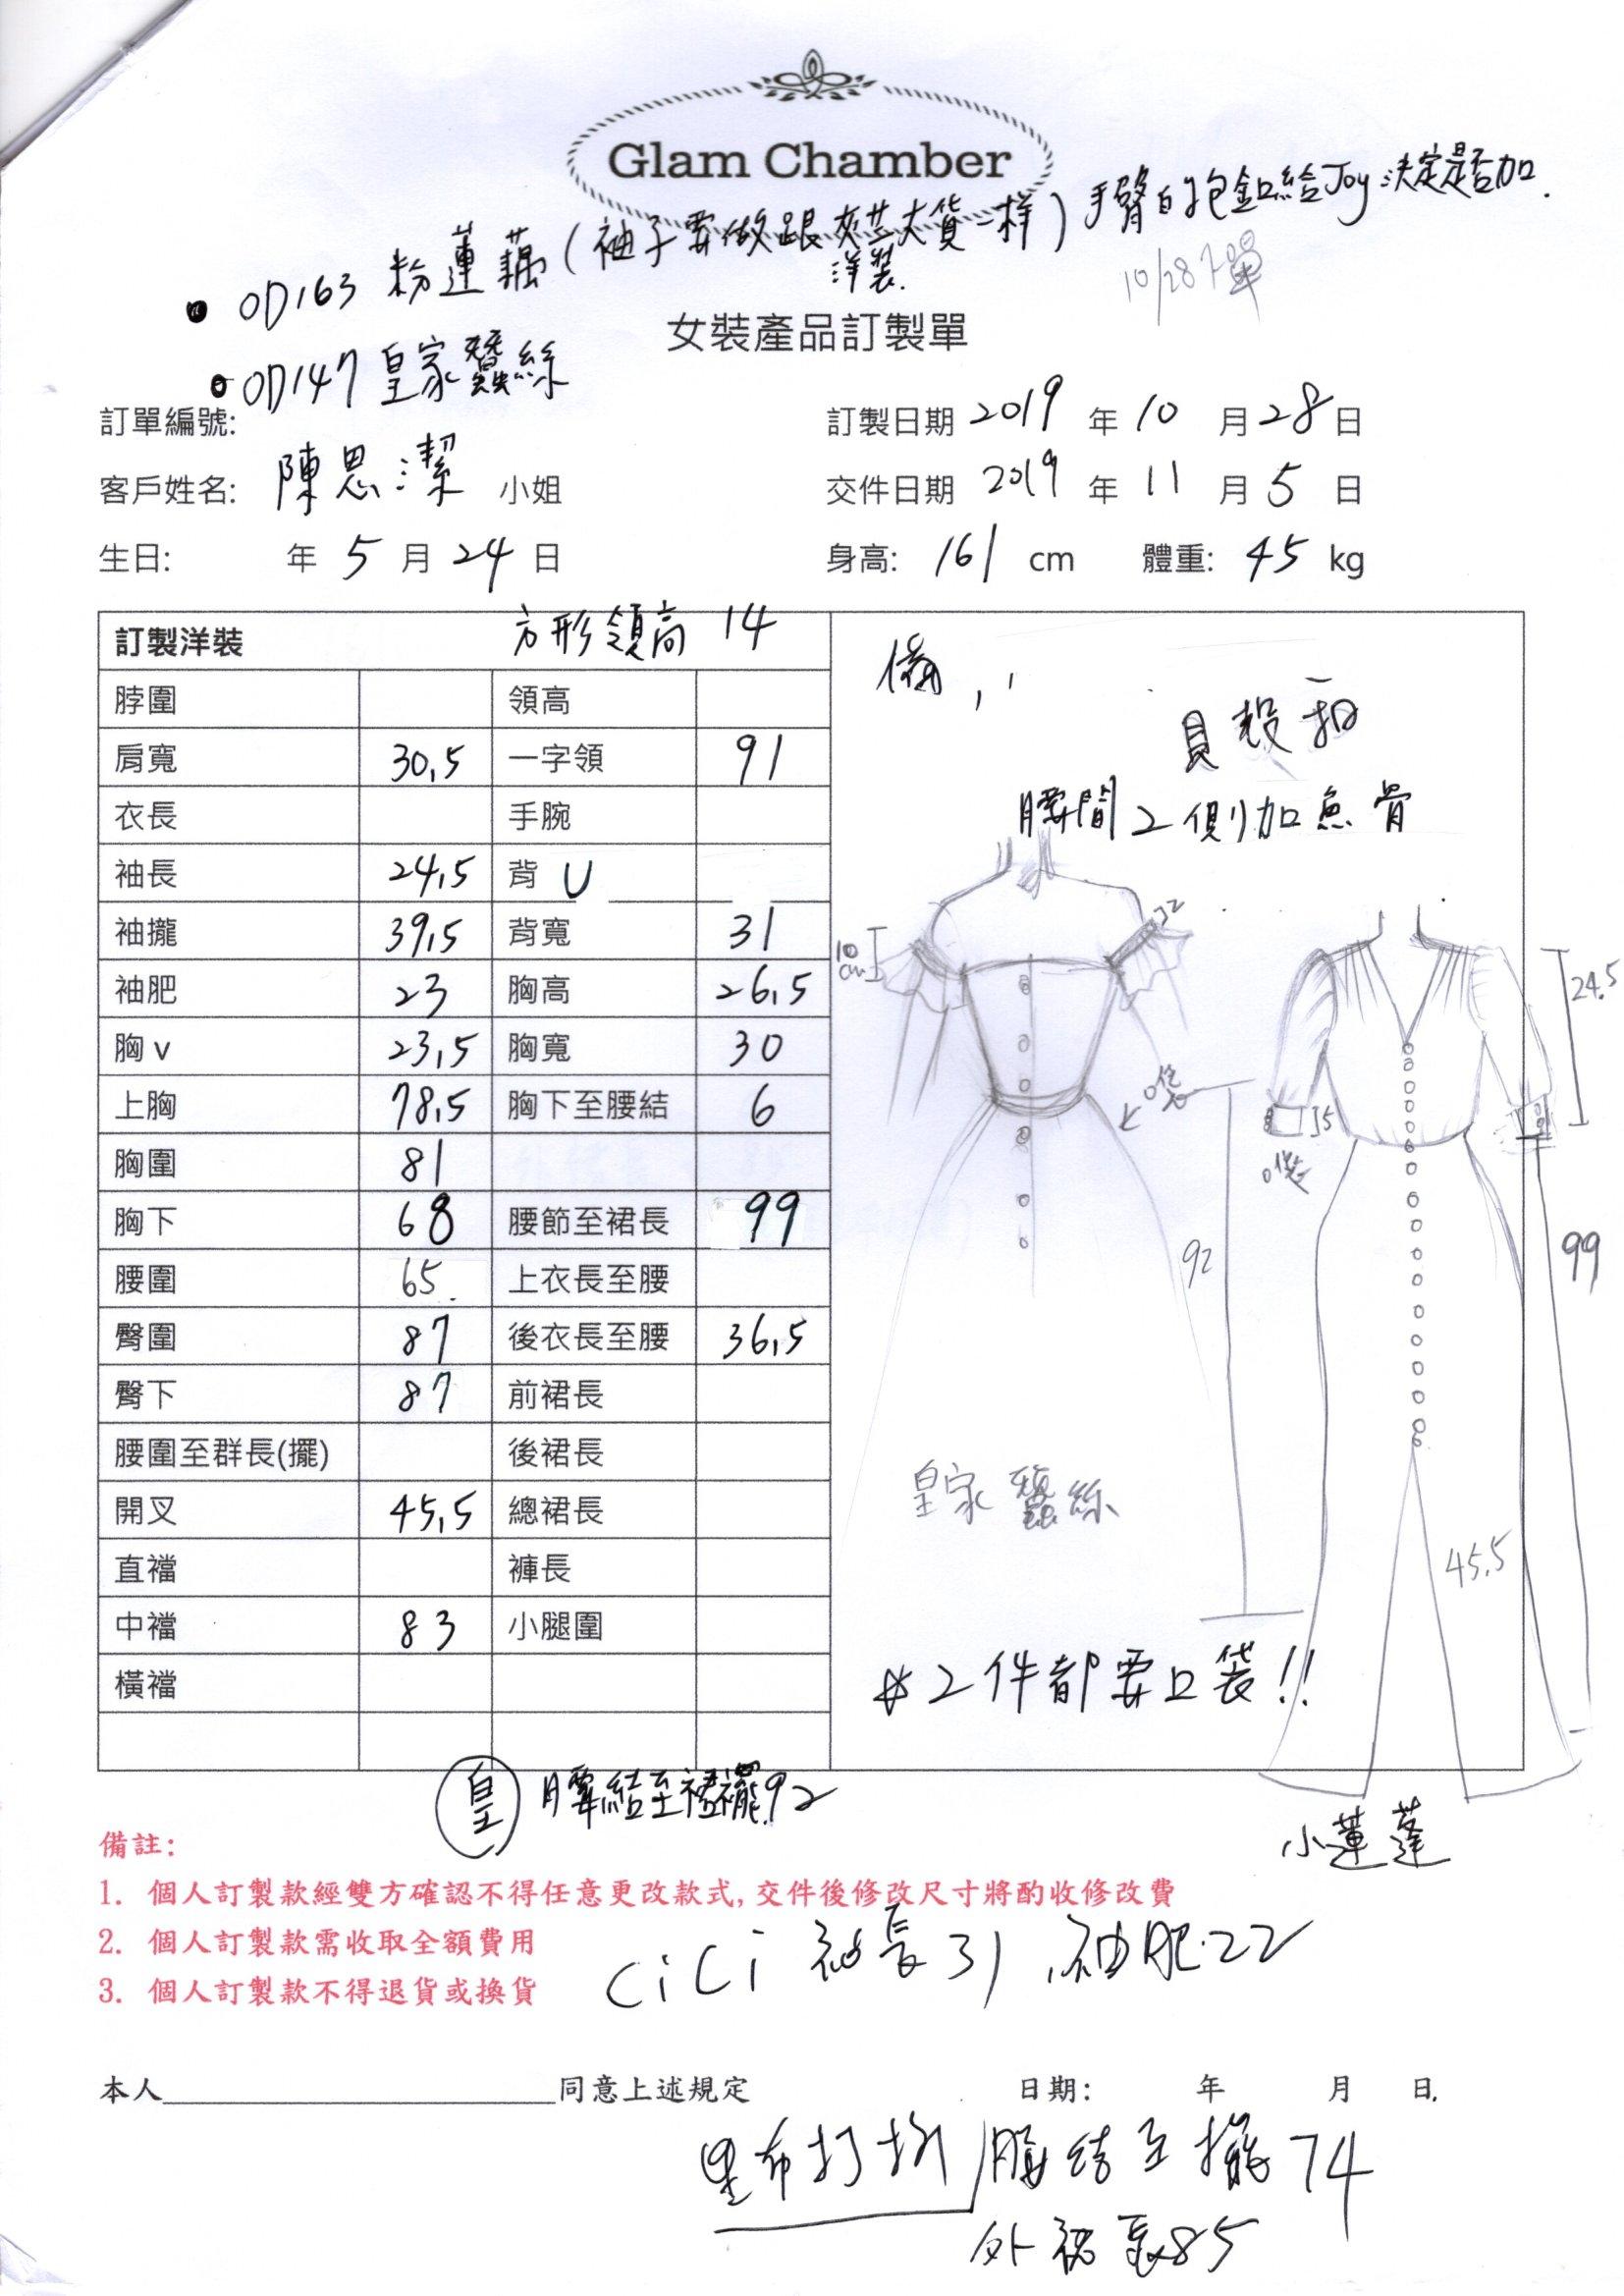 Glam Chamber
• OD163 粉蓮藕(袖子要做跟 大貨一樣)手臂的包釦給Joy決定是否加.
洋裝.
10/28下單
女裝產品訂製單
• OD147 皇家蠶絲
訂單編號:
訂製日期 2019 年 10 月 28 日
客戶姓名: 陳思潔 小姐
交件日期 2019 年 11 月 5 日
生日: 年 5 月 24 日
身高: 161 cm 體重: 45 kg
訂製洋裝 方形領高 14
脖圍 領高
肩寬 30,5 一字領 91
衣長 手腕
袖長 24,5 背 U
袖攏 39,5 背寬 31
袖肥 23 胸高 26,5
胸v 23,5 胸寬 30
上胸 78,5 胸下至腰結 6
胸圍 81
胸下 68 腰節至裙長 99
腰圍 65. 上衣長至腰
臀圍 87 後衣長至腰 36,5
臀下 87 前裙長
腰圍至群長(擺) 後裙長
開叉 45,5 總裙長
直襠 褲長
中襠 83 小腿圍
橫襠
貝殼扣
腰間2側加魚骨
10cm
2
24.5
口袋
5
口袋
92
99
皇家蠶絲
45.5
*2件都要口袋!!
皇 腰結至裙襬92
小蓮蓬
備註:
1. 個人訂製款經雙方確認不得任意更改款式,交件後修改尺寸將酌收修改費
2. 個人訂製款需收取全額費用
3. 個人訂製款不得退貨或換貨
CiCi 袖長31,袖肥22
本人 同意上述規定
日期: 年 月 日.
里布打折/腰結至擺74
外裙長85